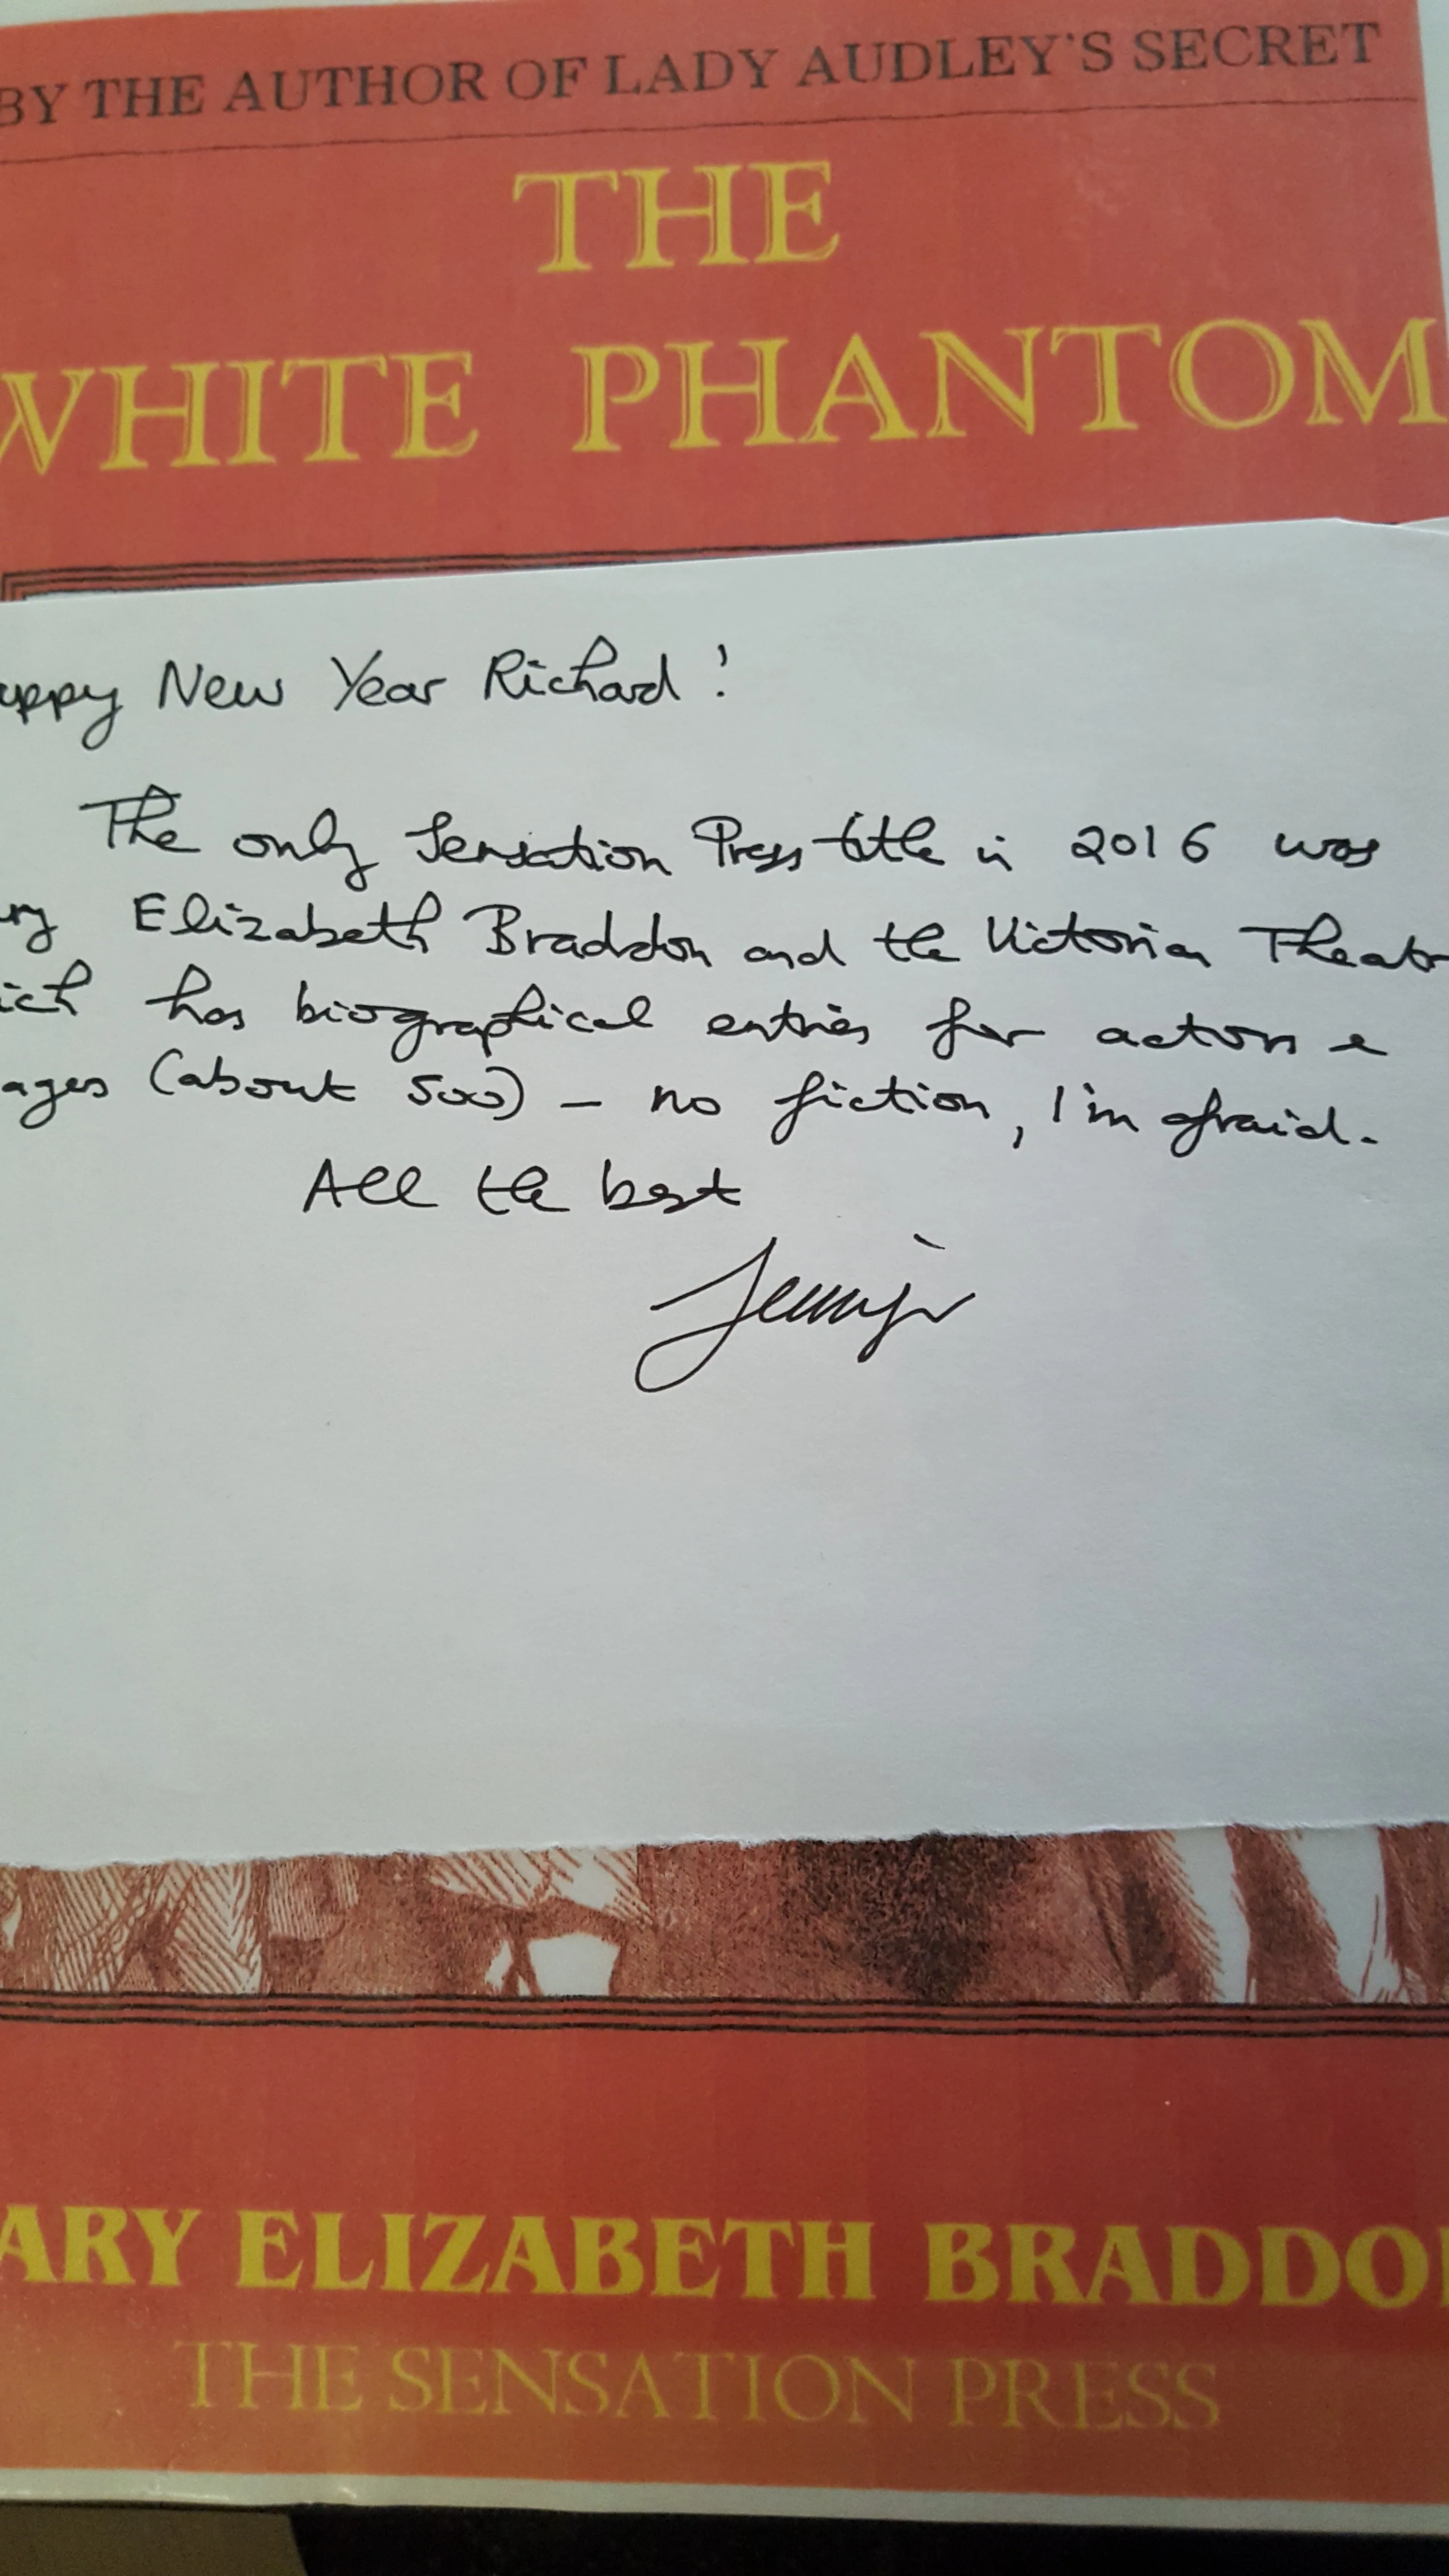 BY THE AUTHOR OF LADY AUDLEY'S SECRET
THE
WHITE PHANTOM
appy New Year Richard!
The only Sensation Press title in 2016 was
ry Elizabeth Braddon and the Victorian Theatr
ich has biographical entries for actors &
ages (about 500) – no fiction, I'm afraid.
All the best
Jennifer
ARY ELIZABETH BRADDO
THE SENSATION PRESS